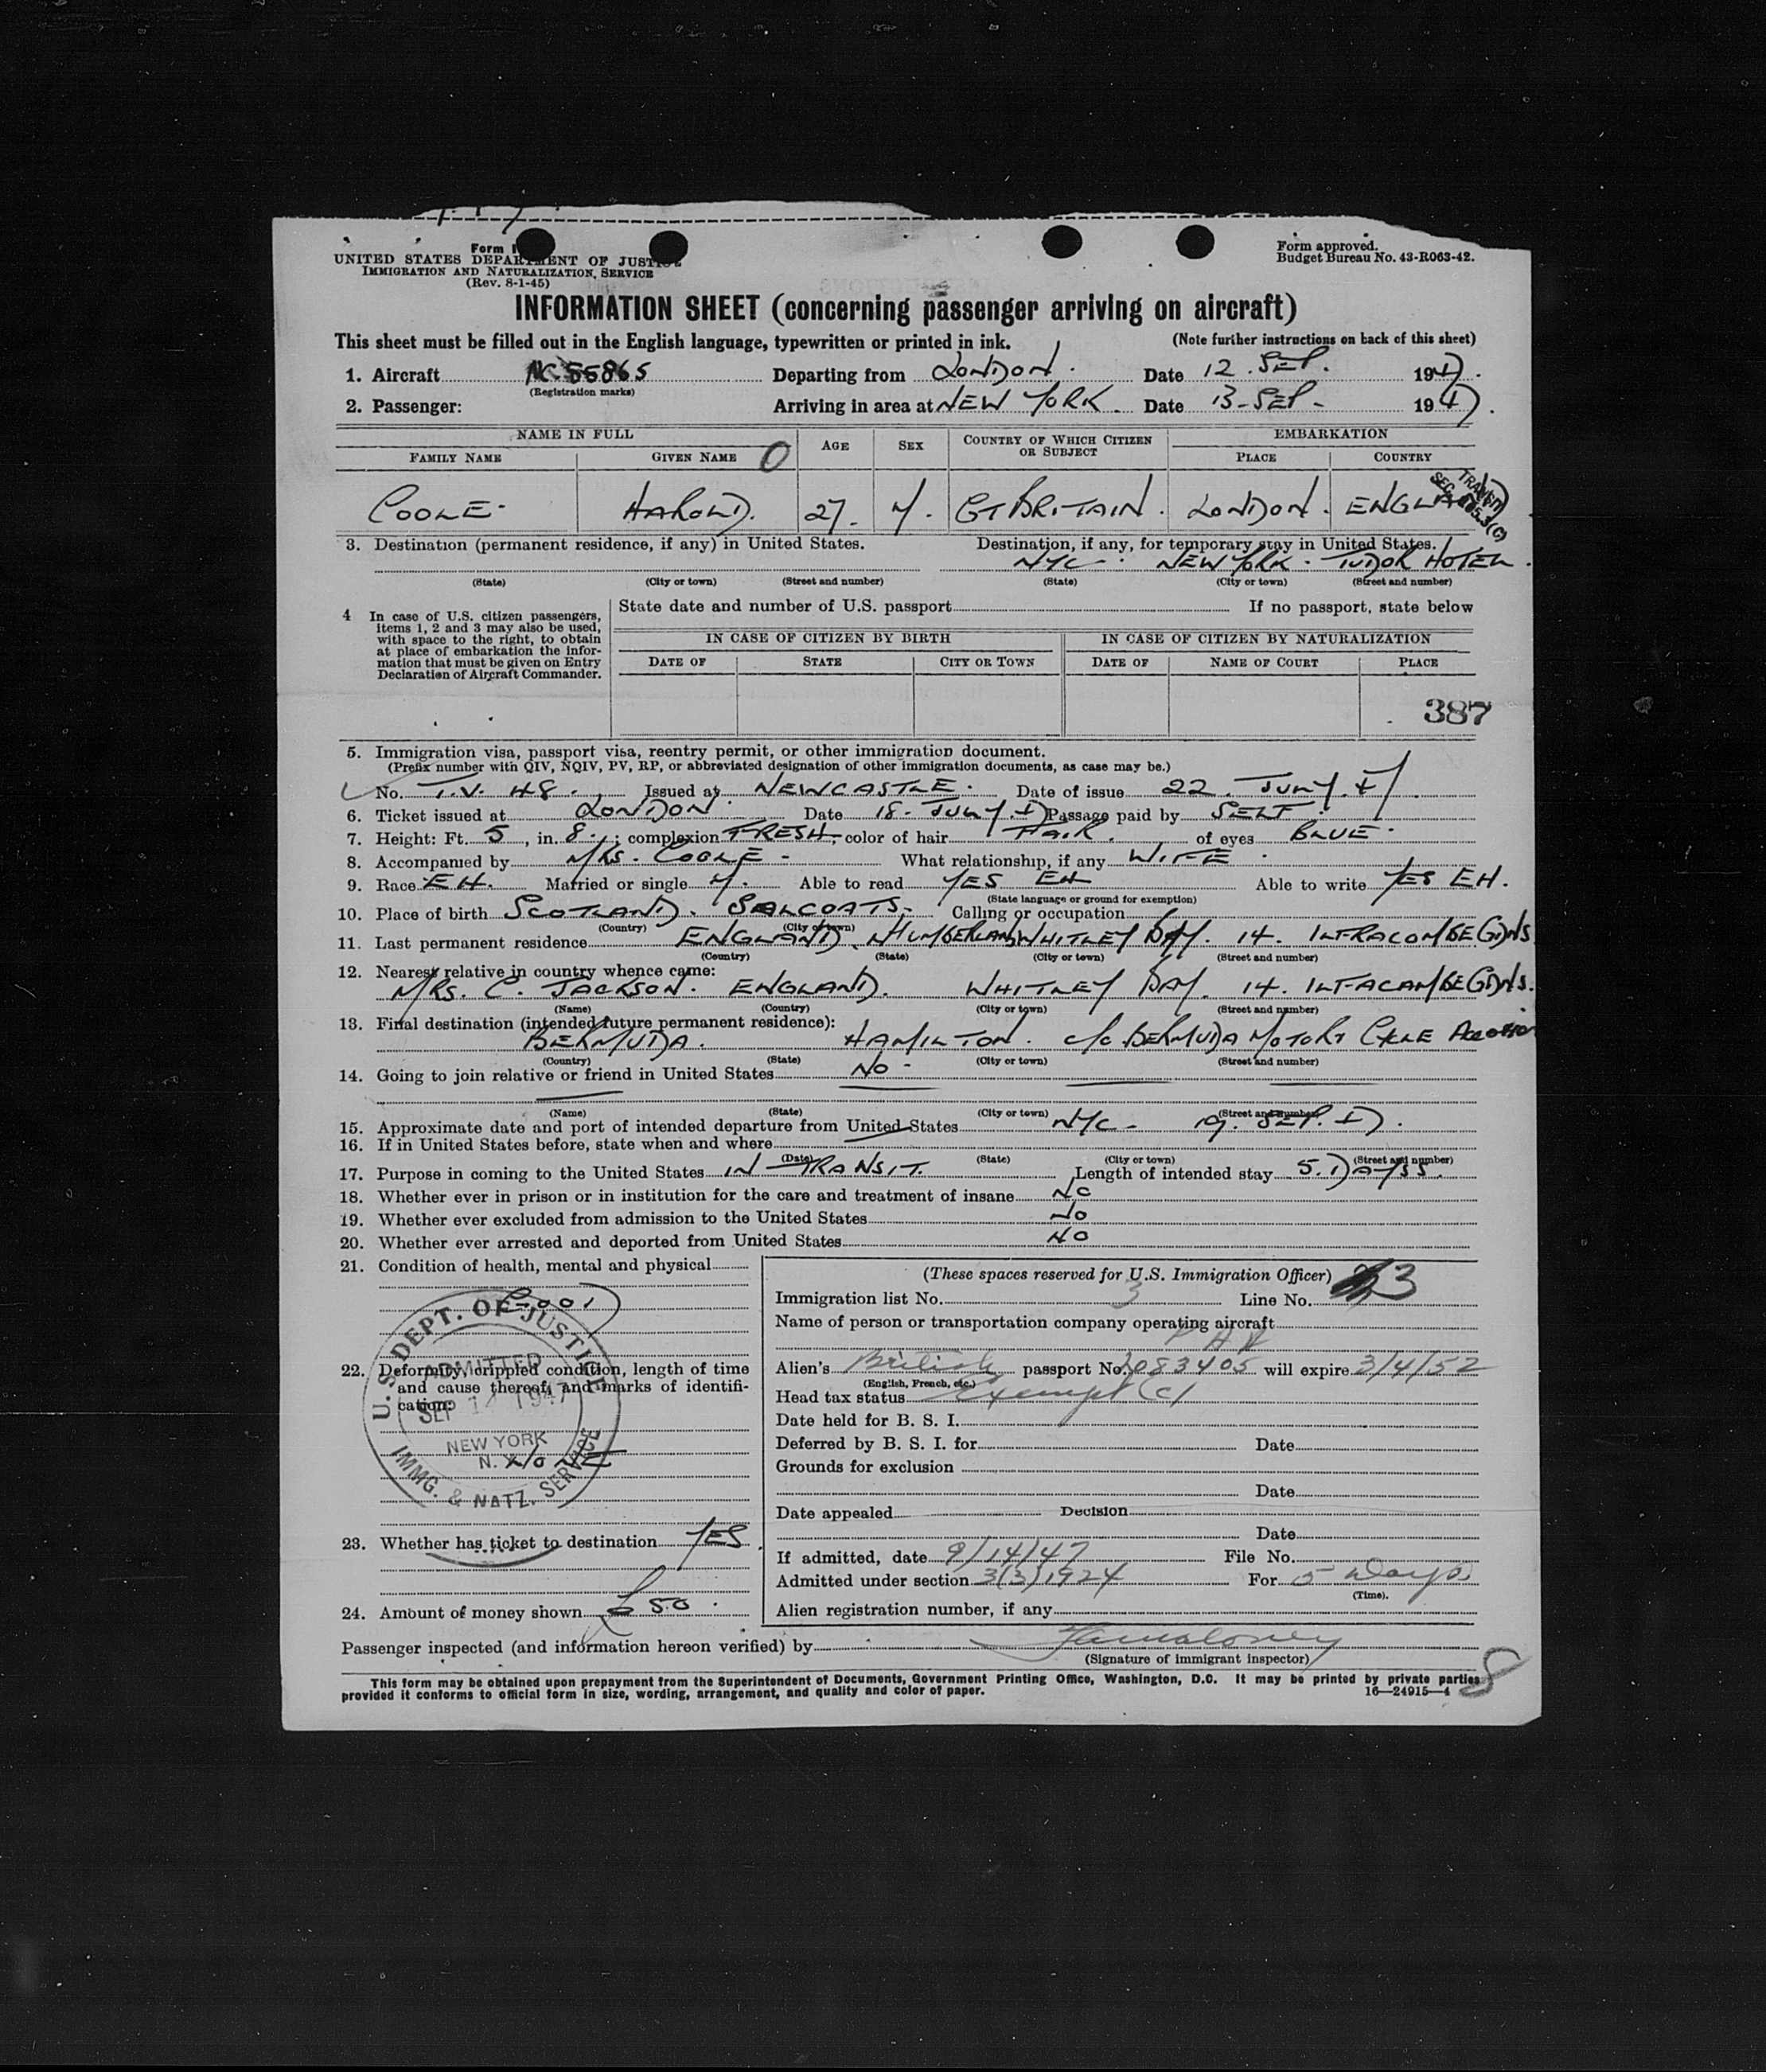 Form I
UNITED STATES DEPARTMENT OF JUSTICE
IMMIGRATION AND NATURALIZATION SERVICE
(Rev. 8-1-45)
Form approved.
Budget Bureau No. 43-R063-42.
INFORMATION SHEET (concerning passenger arriving on aircraft)
This sheet must be filled out in the English language, typewritten or printed in ink. (Note further instructions on back of this sheet)
1. Aircraft NC 88865 Departing from LONDON. Date 12. SEP. 1947.
(Registration marks)
2. Passenger: Arriving in area at NEW YORK. Date 13-SEP- 1947.
NAME IN FULL AGE SEX COUNTRY OF WHICH CITIZEN OR SUBJECT EMBARKATION
FAMILY NAME GIVEN NAME 0 PLACE COUNTRY
COOLE- HAROLD. 27. M. GT BRITAIN. LONDON. ENGLAND
TRAVEL
SEC.
3. Destination (permanent residence, if any) in United States. Destination, if any, for temporary stay in United States.
NYC. NEW YORK. TUDOR HOTEL.
(State) (City or town) (Street and number) (State) (City or town) (Street and number)
4 In case of U.S. citizen passengers, items 1, 2 and 3 may also be used, with space to the right, to obtain at place of embarkation the information that must be given on Entry Declaration of Aircraft Commander.
State date and number of U.S. passport If no passport, state below
IN CASE OF CITIZEN BY BIRTH IN CASE OF CITIZEN BY NATURALIZATION
DATE OF STATE CITY OR TOWN DATE OF NAME OF COURT PLACE
387
5. Immigration visa, passport visa, reentry permit, or other immigration document.
(Prefix number with QIV, NQIV, PV, RP, or abbreviated designation of other immigration documents, as case may be.)
No. T.V. 48. Issued at NEWCASTLE. Date of issue 22. JULY. 47.
6. Ticket issued at LONDON. Date 18. JULY. 47 Passage paid by SELF.
7. Height: Ft. 5, in. 8.; complexion FRESH; color of hair FAIR. of eyes BLUE.
8. Accompanied by MRS. COOLE- What relationship, if any WIFE.
9. Race EH. Married or single M. Able to read YES EH Able to write YES EH.
(State language or ground for exemption)
10. Place of birth SCOTLAND. SALCOATS. Calling or occupation
(Country) (City or town)
11. Last permanent residence ENGLAND. NHUMBERLAND WHITLEY BAY. 14. ILFRACOMBE GDNS
(Country) (State) (City or town) (Street and number)
12. Nearest relative in country whence came:
MRS. C. JACKSON. ENGLAND. WHITLEY BAY. 14. ILFACAMBE GDNS.
(Name) (Country) (City or town) (Street and number)
13. Final destination (intended future permanent residence):
BERMUDA. HAMILTON. C/O BERMUDA MOTOR CYCLE
(Country) (State) (City or town) (Street and number)
14. Going to join relative or friend in United States NO-
(Name) (State) (City or town) (Street and number)
15. Approximate date and port of intended departure from United States NYC- 19. SEP. 47.
16. If in United States before, state when and where
(Date) (State) (City or town) (Street and number)
17. Purpose in coming to the United States IN TRANSIT. Length of intended stay 5. DAYSS.
18. Whether ever in prison or in institution for the care and treatment of insane NO
19. Whether ever excluded from admission to the United States NO
20. Whether ever arrested and deported from United States NO
21. Condition of health, mental and physical
GOOD
22. Deformity, crippled condition, length of time and cause thereof, and marks of identification:
NONE
U.S. DEPT. OF JUSTICE
ADMITTED
SEP 14 1947
NEW YORK
N.Y.
IMMG. & NATZ. SERVICE
23. Whether has ticket to destination YES.
24. Amount of money shown £ 50.
(These spaces reserved for U.S. Immigration Officer)
Immigration list No. 3 Line No. 3
Name of person or transportation company operating aircraft
P A A
Alien's British passport No. 3083405 will expire 3/4/52
(English, French, etc.)
Head tax status Exempt (c)
Date held for B. S. I.
Deferred by B. S. I. for Date
Grounds for exclusion
Date
Date appealed Decision
Date
If admitted, date 9/14/47 File No.
Admitted under section 3(3)1924 For 5 Days
(Time).
Alien registration number, if any
Passenger inspected (and information hereon verified) by
(Signature of immigrant inspector)
This form may be obtained upon prepayment from the Superintendent of Documents, Government Printing Office, Washington, D.C. It may be printed by private parties
provided it conforms to official form in size, wording, arrangement, and quality and color of paper. 16—24915-4
8